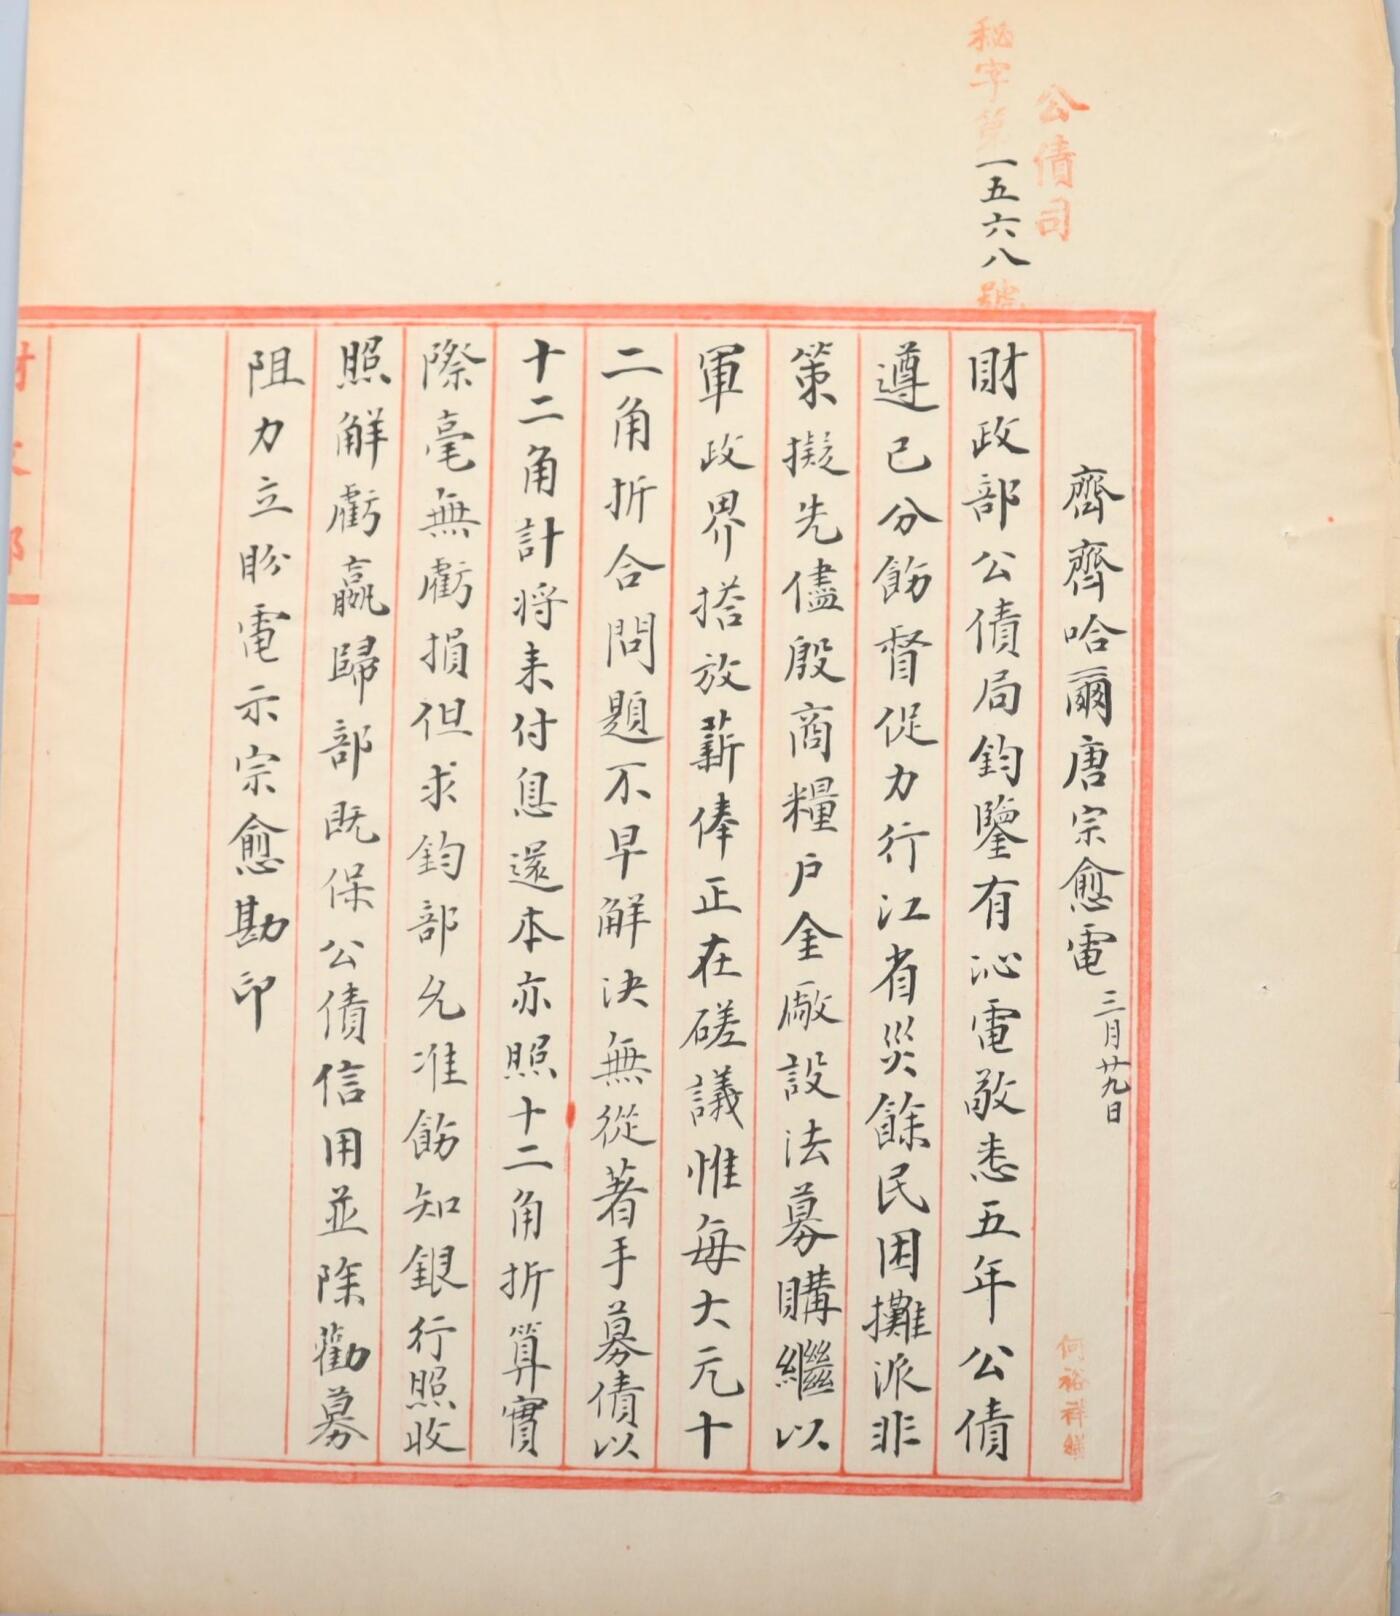 公債司
秘字第一五六八號
齊齊哈爾唐宗愈電 三月廿九日
何裕祥繕
財政部公債局鈞鑒有沁電敬悉五年公債
遵已分飭督促力行江省災餘民困攤派非
策擬先儘殷商糧户金廠設法募購繼以
軍政界搭放薪俸正在磋議惟每大元十
二角折合問題不早解決無從著手募債以
十二角計將来付息還本亦照十二角折算實
際毫無虧損但求鈞部允准飭知銀行照收
照解虧贏歸部既保公債信用並除勸募
阻力立盼電示宗愈勘印